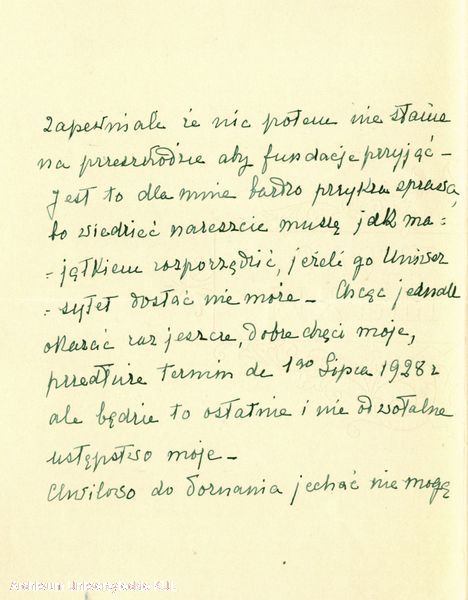 Zapewniał że nic potem nie stanie
na przeszkodzie aby fundację przyjąć –
Jest to dla mnie bardzo przykra sprawa,
bo wiedzieć nareszcie muszę jak ma=
=jątkiem rozporządzić, jeżeli go Uniwer
=sytet dostać nie może – Chcąc jednak
okazać raz jeszcze, dobre chęci moje,
przedłużę termin do 1go Lipca 1928 r
ale będzie to ostatnie i nie odwołalne
ustępstwo moje –
Chwilowo do Poznania jechać nie mogę